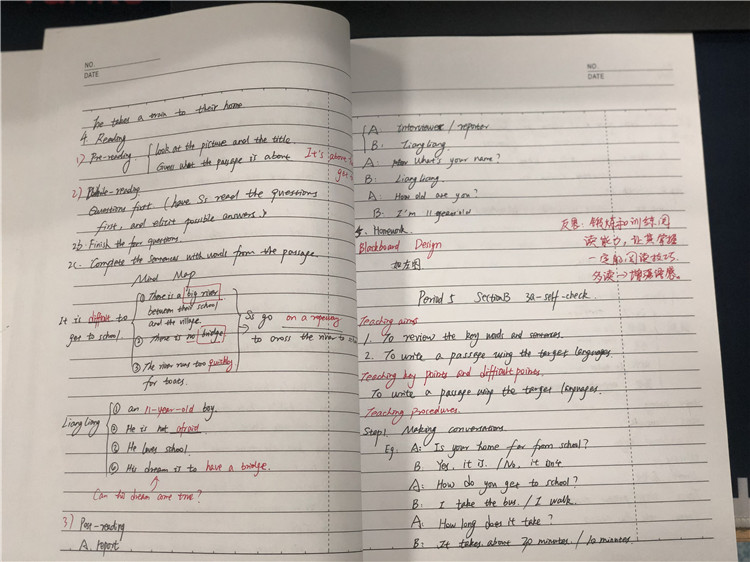 NO.
DATE
He takes a train to their home.
4. Reading
1) Pre-reading { Look at the picture and the title.
Guess what the passage is about It's about
get
2) While-reading
Questions first (have Ss read the questions
first, and elicit possible answers.)
2b. Finish the four questions.
2c. Complete the sentences with words from the passage.
Mind Map
It is difficult to get to school.
① There is a big river between their school and the village.
② There is no bridge
③ The river runs too quickly for boats.
Ss go on a ropeway to cross the river to
Liangliang
① an 11-year-old boy.
② He is not afraid
③ He loves school.
④ His dream is to have a bridge.
Can his dream come true?
3) Post-reading
A. report
NO.
DATE
A: Interviewer / reporter
B: Liangliang.
A: What's your name?
B: Liangliang.
A: How old are you?
B: I'm 11 years old
5. Homework.
Blackboard Design
如左图
反思: 锻炼和训练阅
读能力,让其掌握
一定的阅读技巧.
多读→增强语感.
Period 5 Section B 3a-self-check.
Teaching aims
1. To review the key words and sentences.
2. To write a passage using the target languages.
Teaching key points and difficult points.
To write a passage using the target languages.
Teaching procedures.
Step1. Making conversations
Eg. A: Is your home far from school?
B. Yes, it is. / No, it isn't
A: How do you get to school?
B: I take the bus. / I walk.
A: How long does it take?
B: It takes about 20 minutes. / 10 minutes.